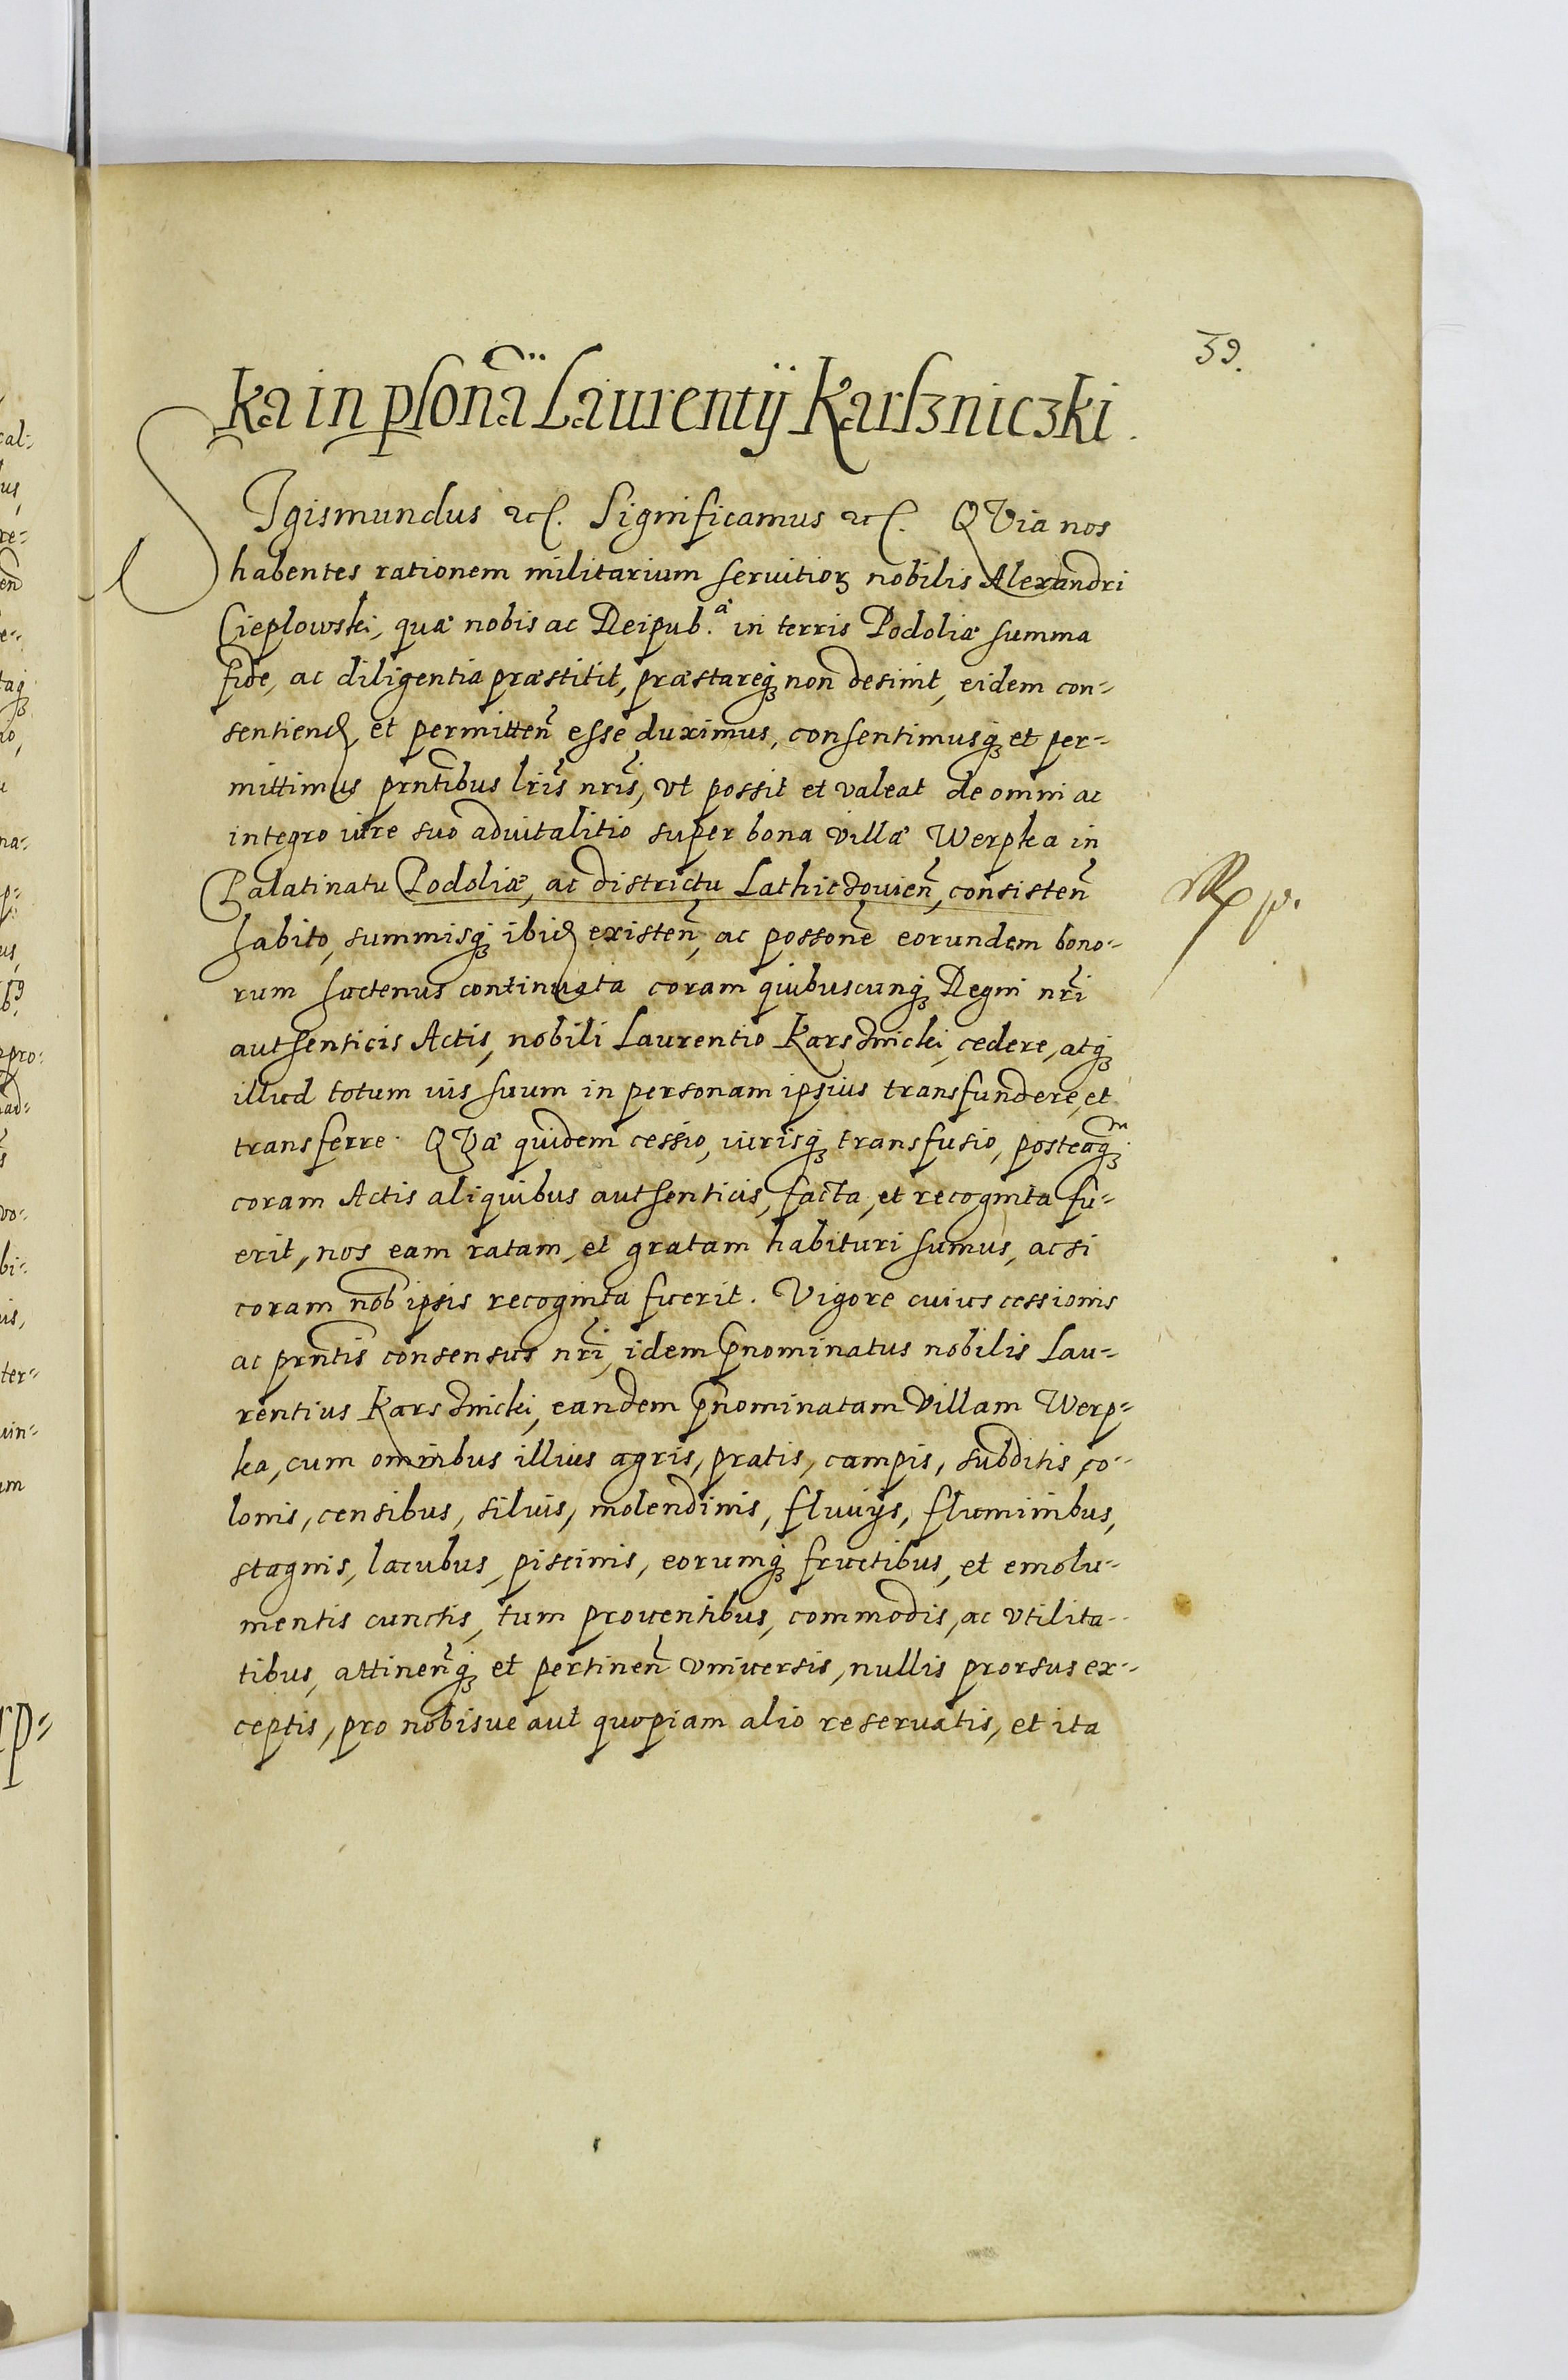 39.
ka in psona͠ Laurentij Karſzniczki.
SIgismundus ꝛc. Significamus ꝛc. QVia nos
habentes rationem militarium seruitioꝝ nobilis Alexandri
Cieplowski, quæ nobis ac Reipub.ᵃ in terris Podoliæ summa
fide, ac diligentia præstitit, præstareqꝫ non desinit, eidem con-
sentiend, et permitten̄ esse duximus, consentimusqꝫ et per-
mittimus prn̄tibus lr̄is nr̄is, vt possit et valeat de omni ac
integro iure suo aduitalitio super bona villæ Werpka in
Palatinatu Podoliæ, ac districtu Lathiczouien̄, consisten̄
habito, summisqꝫ ibid existen̄, ac possone͠ eorundem bono-
rum hactenus continuata coram quibuscunqꝫ Regni nr̄i
authenticis Actis, nobili Laurentio Karsznicki, cedere, atqꝫ
illud totum ius suum in personam ipsius transfundere, et
transferre. QVæ quidem cessio, iurisqꝫ transfusio, posteaqꝫᵐ
coram Actis aliquibus authenticis, facta, et recognita fu-
erit, nos eam ratam, et gratam habituri sumus, ac si
coram nob̄ ipsis recognita fuerit. Vigore cuius cessionis
ac prn̄tis consensus nr̄i, idem p̄nominatus nobilis Lau-
rentius Karsznicki, eandem p̄nominatam Villam Werp-
ka, cum omnibus illius agris, pratis, campis, subditis, co-
lonis, censibus, siluis, molendinis, fluuijs, fluminibus,
stagnis, lacubus, piscinis, eorumqꝫ fructibus, et emolu-
mentis cunctis, tum prouentibus, commodis, ac vtilita-
tibus, attinen̄qꝫ et pertinen̄ vniuersis, nullis prorsus ex-
ceptis, pro nobisue aut quopiam alio reseruatis, et ita